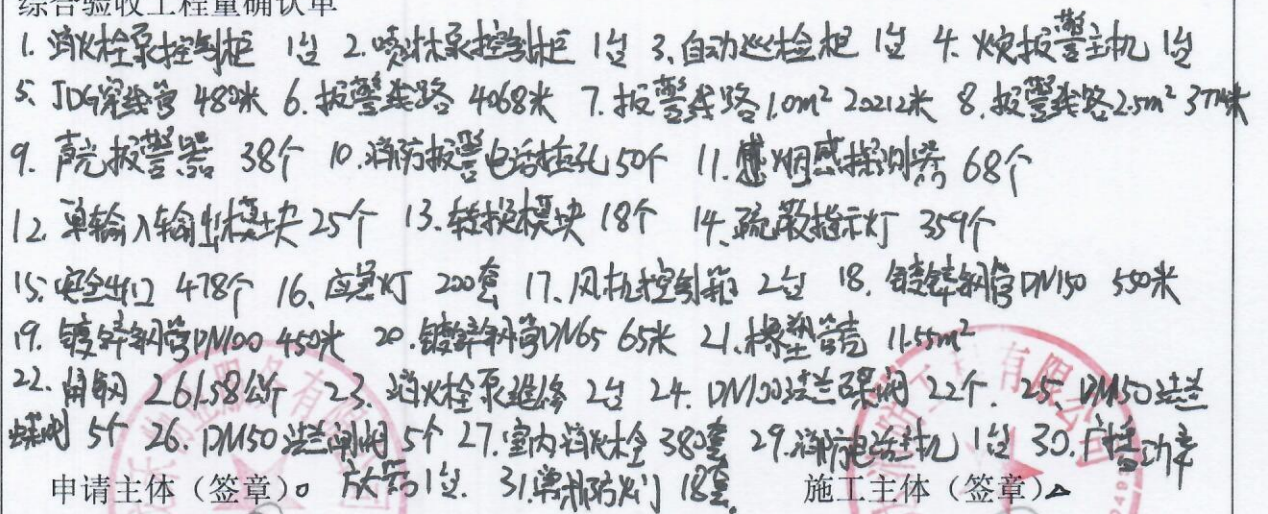 综合验收工程量确认单
1. 消火栓泵控制柜 1台 2.喷淋泵控制柜 1台 3、自动巡检柜 1台 4. 火灾报警主机 1台
5、JDG穿线管 480米 6.报警线路 4068米 7.报警线路1.0m² 20212米 8.报警线路2.5m² 米
9. 声光报警器 38个 10.消防报警电话插孔50个 11.感烟感探测器 68个
12.单输入输出模块25个 13.转换模块 18个 14.疏散指示灯 359个
15.安全出口 478个 16、应急灯 200套 17.风机控制箱 2台 18. 镀锌钢管DN150 550米
19.镀锌钢管DN100 450米 20.镀锌钢管DN65 65米 21.橡塑管壳 11.55m²
22.角钢 261.58公斤 23.消火栓泵维修 2台 24. DN100法兰碟阀 22个. 25. DN150法兰
蝶阀 5个 26. DN150法兰闸阀 5个 27.室内消火栓 380套 29.消防电话主机 1台 30.广播功率
放大器1台. 31.单扇防火门 18套.
申请主体（签章）。 施工主体（签章）
有限公司